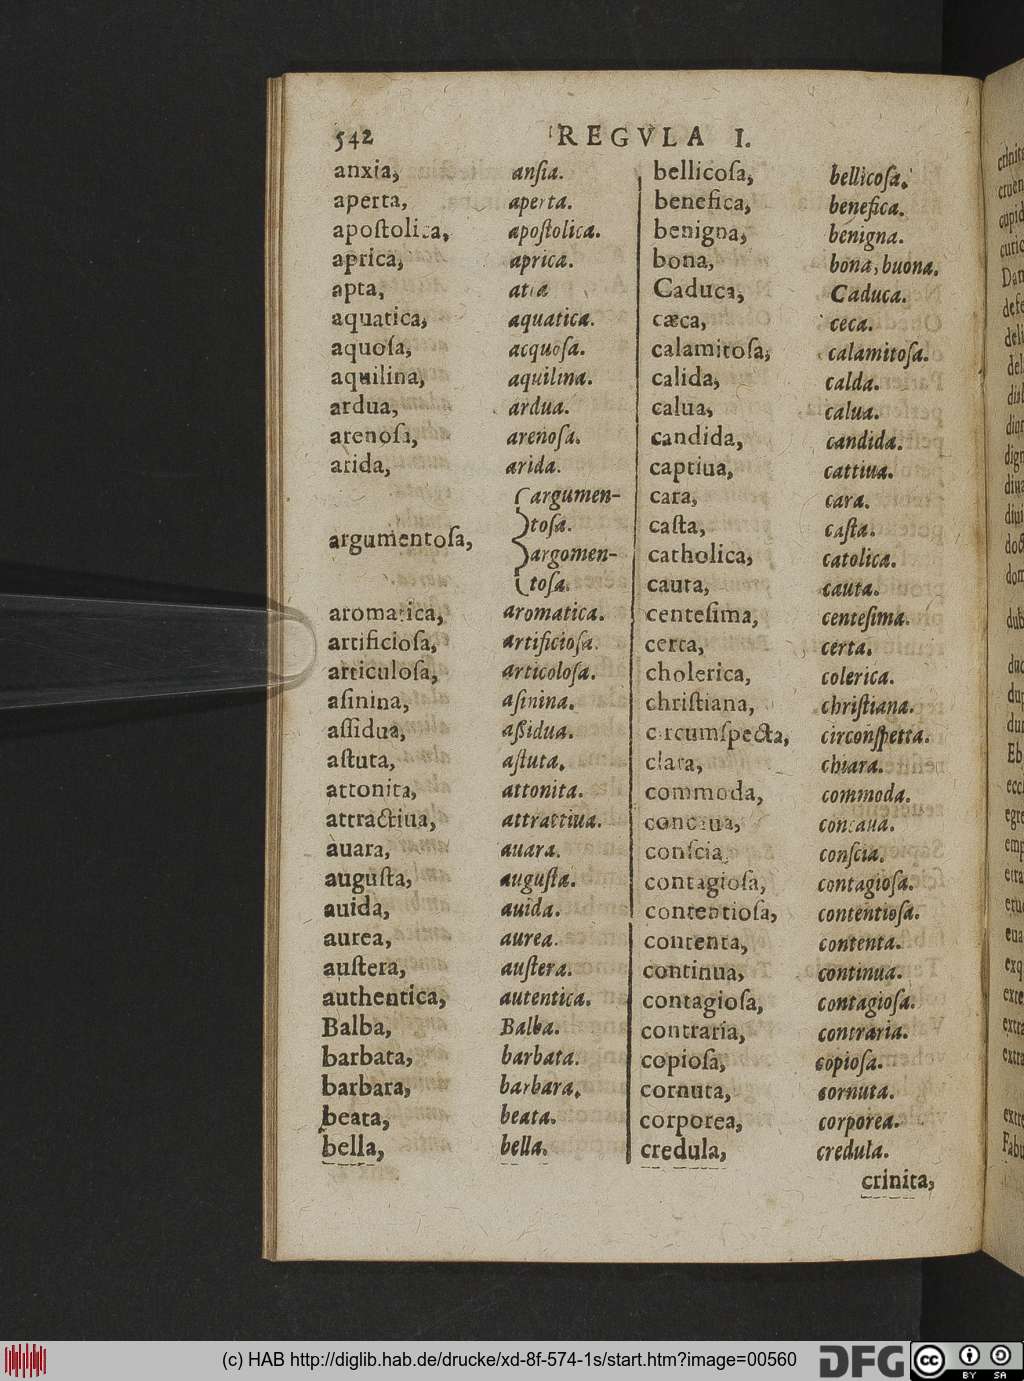 542 REGVLA I.
anxia, anſia.
aperta, aperta.
apoſtolica, apoſtolica.
aprica, aprica.
apta, atta
aquatica, aquatica.
aquoſa, acquoſa.
aquilina, aquilina.
ardua, ardua.
arenoſa, arenoſa.
arida, arida.
argumentoſa, {argumen-
toſa.
argomen-
toſa.
aromatica, aromatica.
artificioſa, artificioſa.
articuloſa, articoloſa.
aſinina, aſinina.
aſſidua, aßidua.
aſtuta, aſtuta.
attonita, attonita.
attractiua, attrattiua.
auara, auara.
auguſta, auguſta.
auida, auida.
aurea, aurea.
auſtera, auſtera.
authentica, autentica.
Balba, Balba.
barbata, barbata.
barbara, barbara.
beata, beata.
bella, bella.
bellicoſa, bellicoſa.
benefica, benefica.
benigna, benigna.
bona, bona, buona.
Caduca, Caduca.
cæca, ceca.
calamitoſa, calamitoſa.
calida, calda.
calua, calua.
candida, candida.
captiua, cattiua.
cara, cara.
caſta, caſta.
catholica, catolica.
cauta, cauta.
centeſima, centeſima.
certa, certa.
cholerica, colerica.
chriſtiana, chriſtiana.
circumſpecta, circonſpetta.
clara, chiara.
commoda, commoda.
concaua, concaua.
conſcia, conſcia.
contagioſa, contagioſa.
contentioſa, contentioſa.
contenta, contenta.
continua, continua.
contagioſa, contagioſa.
contraria, contraria.
copioſa, copioſa.
cornuta, cornuta.
corporea, corporea.
credula, credula.
crinita,
(c) HAB http://diglib.hab.de/drucke/xd-8f-574-1s/start.htm?image=00560
DFG
cc BY SA